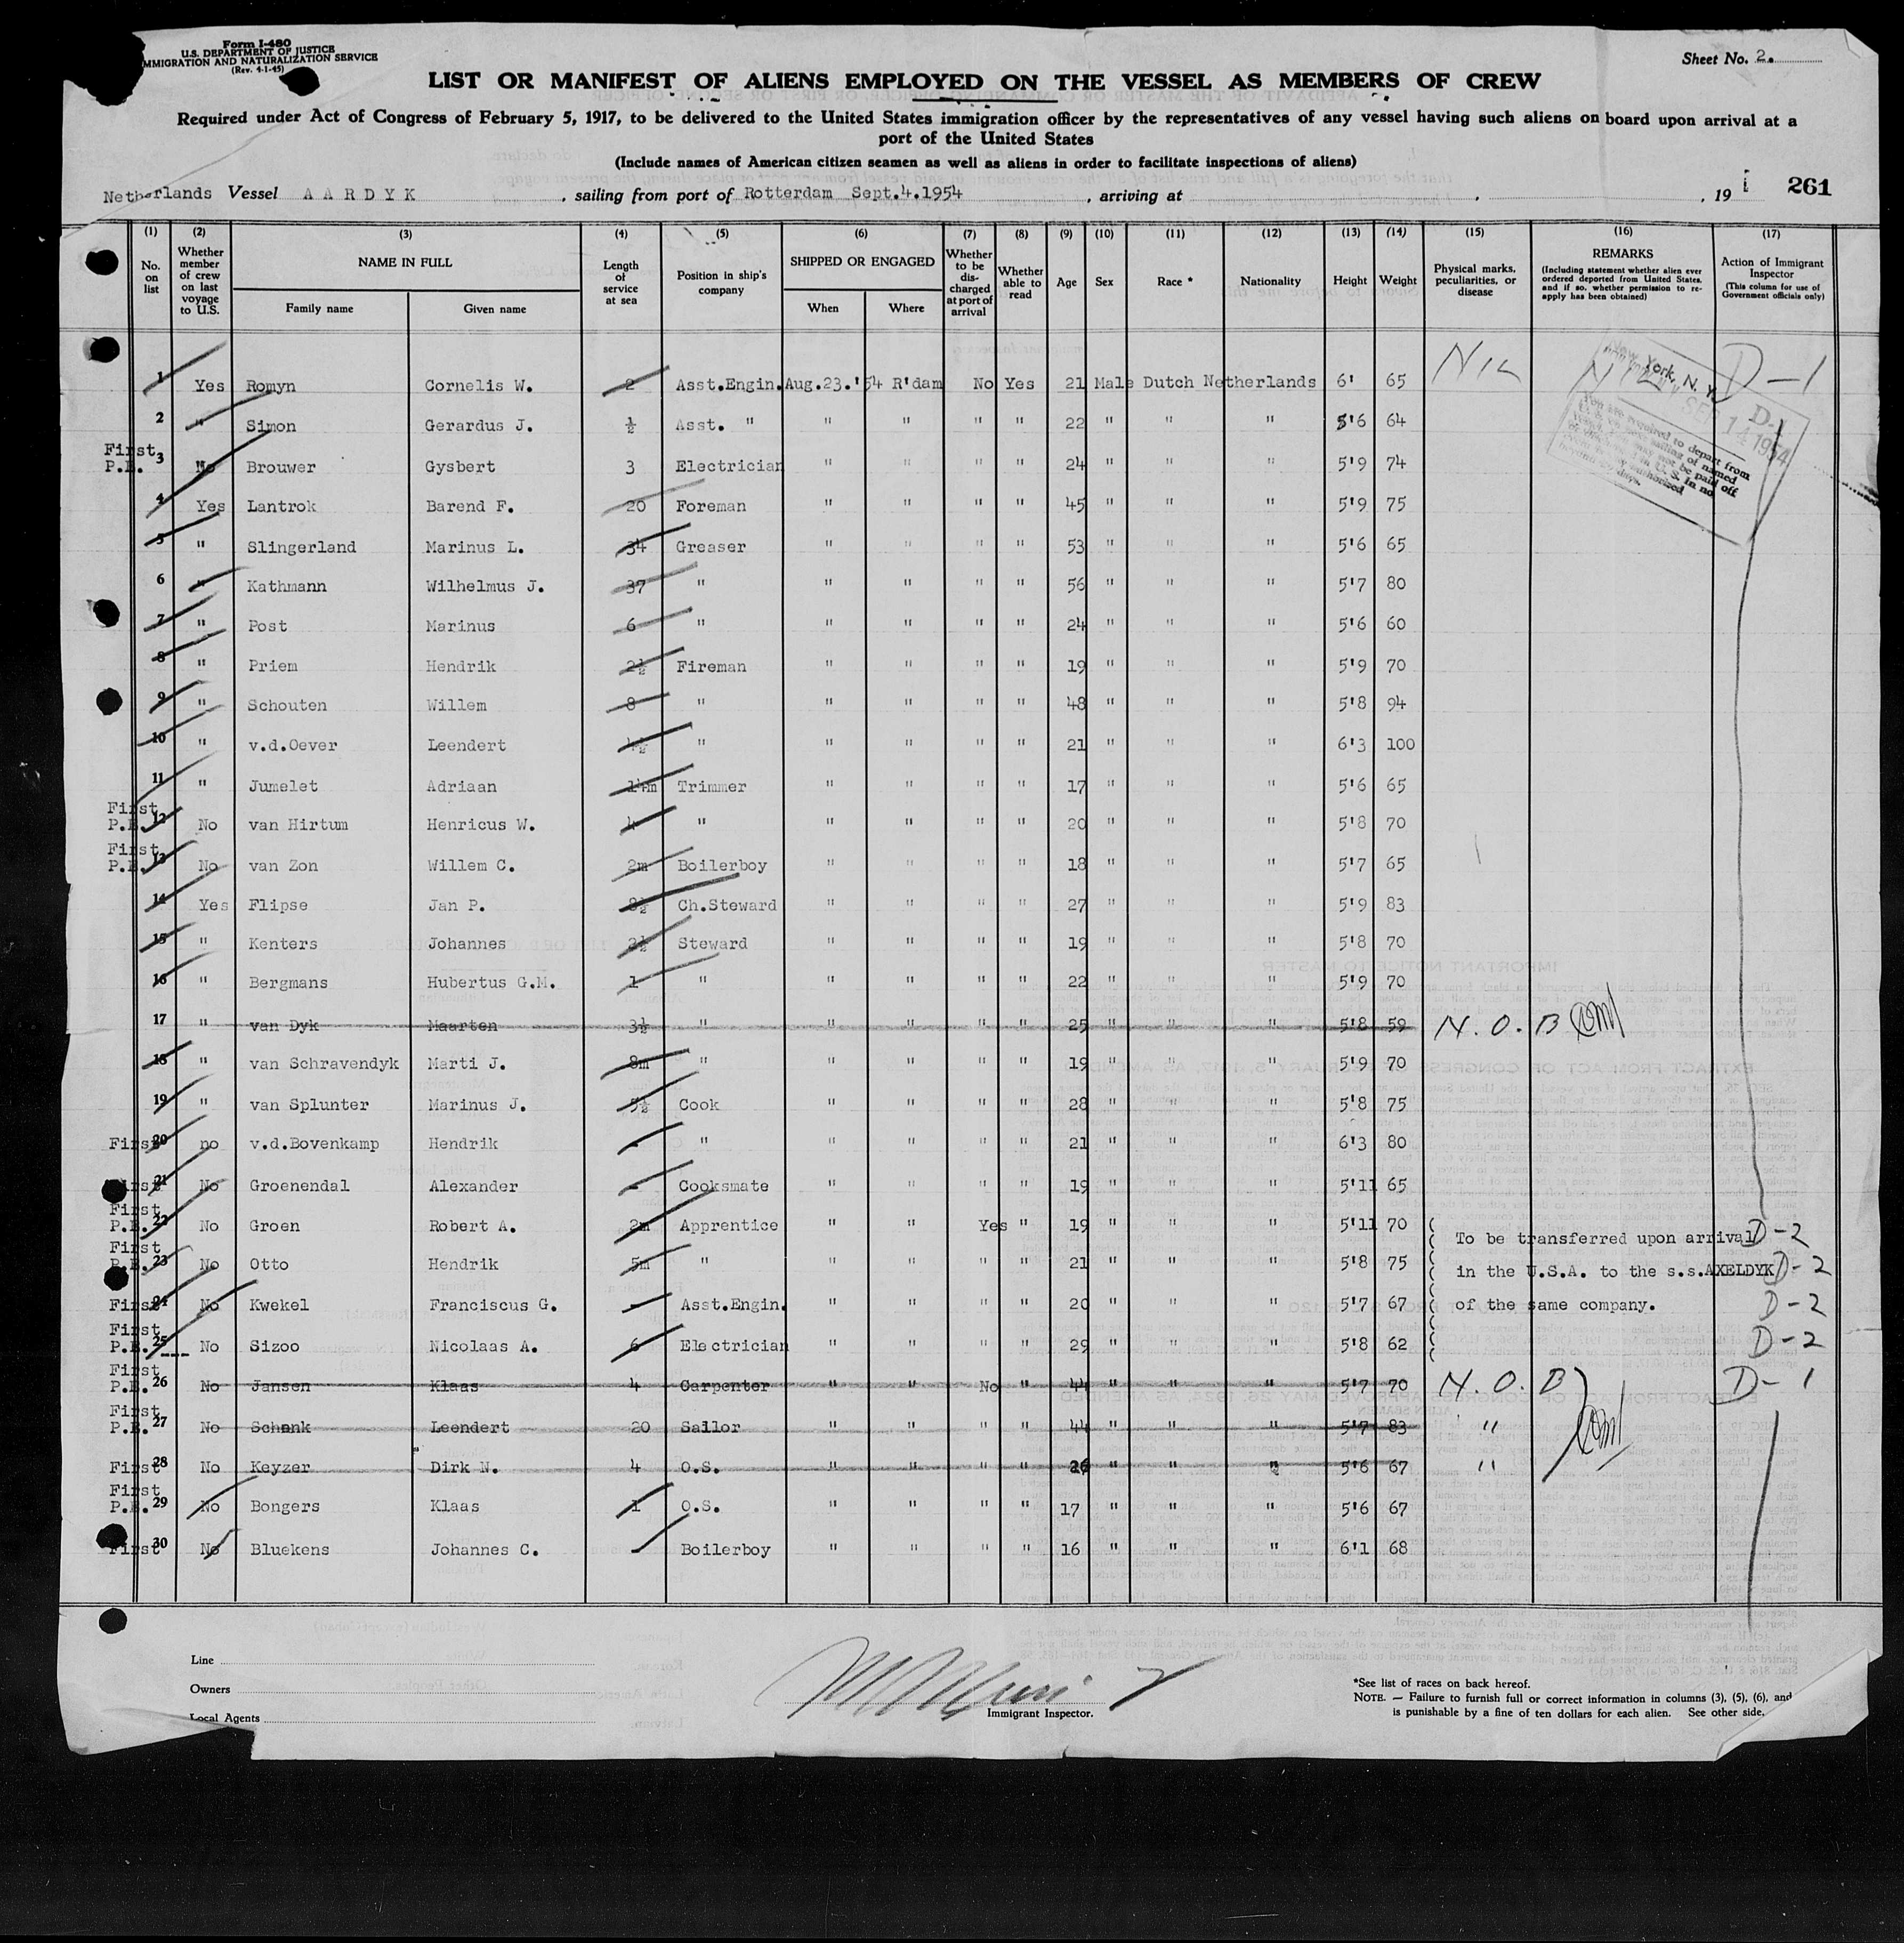 Form I-480
U.S. DEPARTMENT OF JUSTICE
IMMIGRATION AND NATURALIZATION SERVICE
(Rev. 4-1-45)
Sheet No. 2.
LIST OR MANIFEST OF ALIENS EMPLOYED ON THE VESSEL AS MEMBERS OF CREW
Required under Act of Congress of February 5, 1917, to be delivered to the United States immigration officer by the representatives of any vessel having such aliens on board upon arrival at a
port of the United States
(Include names of American citizen seamen as well as aliens in order to facilitate inspections of aliens)
Netherlands Vessel AARDYK, sailing from port of Rotterdam Sept.4.1954, arriving at , , 19 261
(1) No. on list (2) Whether member of crew on last voyage to U.S. (3) NAME IN FULL Family name Given name (4) Length of service at sea (5) Position in ship's company (6) SHIPPED OR ENGAGED When Where (7) Whether to be discharged at port of arrival (8) Whether able to read (9) Age (10) Sex (11) Race * (12) Nationality (13) Height (14) Weight (15) Physical marks, peculiarities, or disease (16) REMARKS (Including statement whether alien ever ordered deported from United States, and if so, whether permission to reapply has been obtained) (17) Action of Immigrant Inspector (This column for use of Government officials only)
1 Yes Romyn Cornelis W. 2 Asst.Engin. Aug.23.'54 R'dam No Yes 21 Male Dutch Netherlands 6' 65 D-1
2 " Simon Gerardus J. ½ Asst. " " " " " 22 " " " 5'6 64
First P.E. 3 No Brouwer Gysbert 3 Electrician " " " " 24 " " " 5'9 74
4 Yes Lantrok Barend F. 20 Foreman " " " " 45 " " " 5'9 75
5 " Slingerland Marinus L. 34 Greaser " " " " 53 " " " 5'6 65
6 " Kathmann Wilhelmus J. 37 " " " " " 56 " " " 5'7 80
7 " Post Marinus 6 " " " " " 24 " " " 5'6 60
8 " Priem Hendrik 2½ Fireman " " " " 19 " " " 5'9 70
9 " Schouten Willem 8 " " " " " 48 " " " 5'8 94
10 " v.d.Oever Leendert " " " " " 21 " " " 6'3 100
11 " Jumelet Adriaan Trimmer " " " " 17 " " " 5'6 65
First P.E. 12 No van Hirtum Henricus W. 4 " " " " " 20 " " " 5'8 70
First P.E. 13 No van Zon Willem C. 2m Boilerboy " " " " 18 " " " 5'7 65
14 Yes Flipse Jan P. Ch.Steward " " " " 27 " " " 5'9 83
15 " Kenters Johannes Steward " " " " 19 " " " 5'8 70
16 " Bergmans Hubertus G.M. 1 " " " " " 22 " " " 5'9 70
17 " van Dyk Maarten 3½ " " " " " 25 " " " 5'8 59 N.O.B
18 " van Schravendyk Marti J. 8m " " " " " 19 " " " 5'9 70
19 " van Splunter Marinus J. 5½ Cook " " " " 28 " " " 5'8 75
First 20 no v.d.Bovenkamp Hendrik - " " " " " 21 " " " 6'3 80
First 21 No Groenendal Alexander - Cooksmate " " " " 19 " " " 5'11 65
First P.E. 22 No Groen Robert A. 2m Apprentice " " Yes " 19 " " " 5'11 70 To be transferred upon arrival D-2
First P.E. 23 No Otto Hendrik 5m " " " " " 21 " " " 5'8 75 in the U.S.A. to the s.s.AXELDYK D-2
First 24 No Kwekel Franciscus G. - Asst.Engin. " " " " 20 " " " 5'7 67 of the same company. D-2
First P.E. 25 No Sizoo Nicolaas A. 6 Electrician " " " " 29 " " " 5'8 62 D-2
First P.E. 26 No Jansen Klaas 4 Carpenter " " No " 44 " " " 5'7 70 N.O.B D-1
First P.E. 27 No Schenk Leendert 20 Sailor " " " " 44 " " " 5'7 83 "
First 28 No Keyzer Dirk N. 4 O.S. " " " " 26 " " " 5'6 67 "
First P.E. 29 No Bongers Klaas 1 O.S. " " " " 17 " " " 5'6 67
First 30 No Bluekens Johannes C. - Boilerboy " " " " 16 " " " 6'1 68
New York, N. Y.
SEP 14 1954
D-1
Line
Owners
Local Agents
Immigrant Inspector.
*See list of races on back hereof.
NOTE. — Failure to furnish full or correct information in columns (3), (5), (6), and
is punishable by a fine of ten dollars for each alien. See other side.